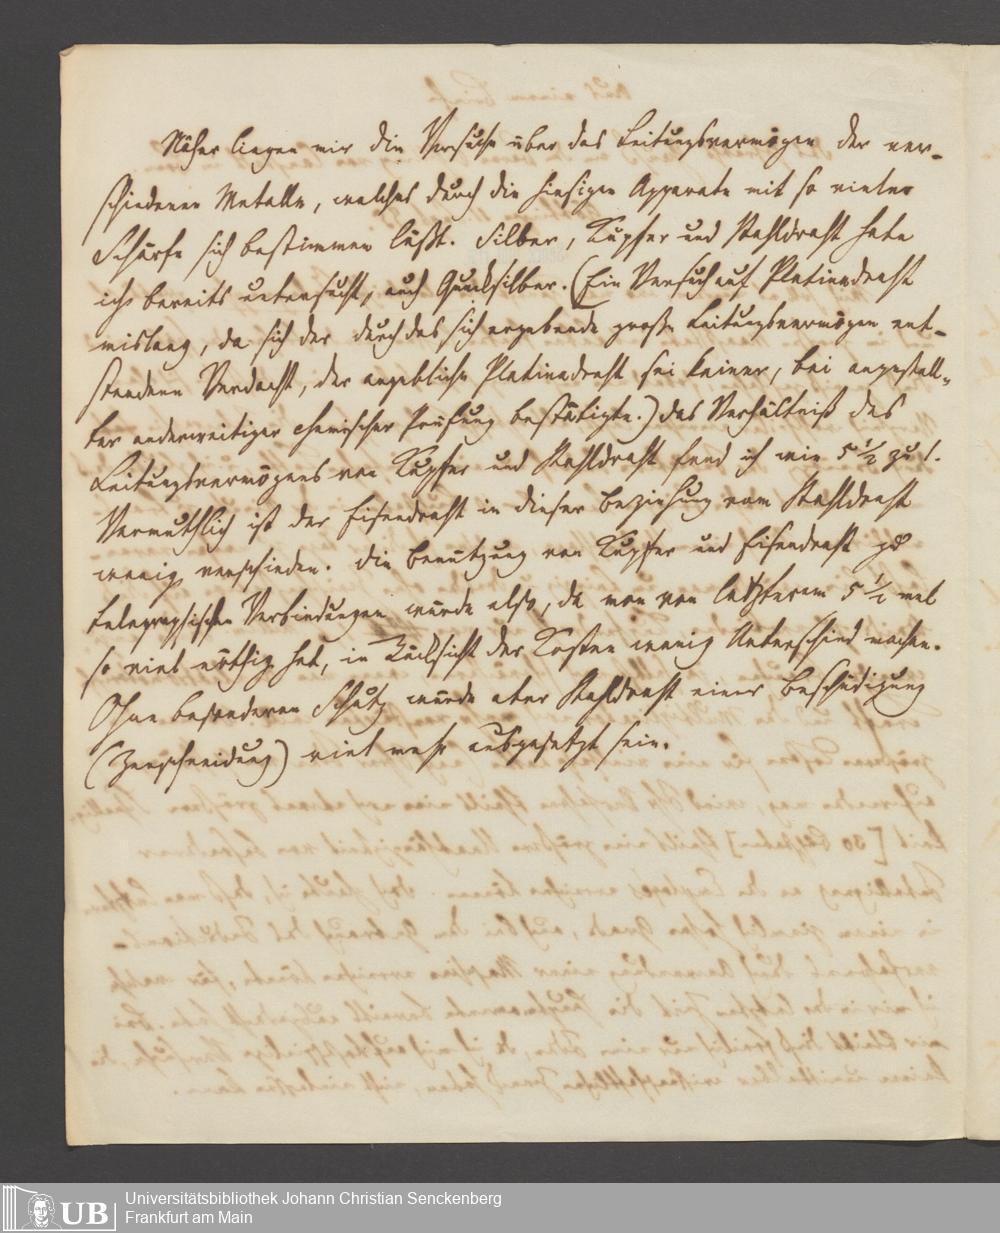 Näher liegen mir die Versuche über das Leitungsvermögen der ver-
schiedenen Metalle, welches durch die hiesigen Apparate mit so vieler
Schärfe sich bestimmen läßt. Silber, Kupfer und Stahldraht habe
ich bereits untersucht, auch Quecksilber. (Ein Versuch auf Platinadraht
mislang, da sich der durch das sich ergebende große Leitungsvermögen ent-
standene Verdacht, der angebliche Platinadraht sei keiner, bei angestell-
ter anderweitiger chemischer Prüfung bestätigte.) Das Verhältniß des
Leitungsvermögens von Kupfer und Stahldraht fand ich wie 5 1/2 zu 1.
Vermuthlich ist der Eisendraht in dieser Beziehung vom Stahldraht
wenig verschieden. Die Benutzung von Kupfer und Eisendraht zu
telegraphischen Verbindungen würde also, da man von letzterem 5 1/2 mal
so viel nöthig hat, in Rücksicht der Kosten wenig Unterschied machen.
Ohne besonderen Schutz würde aber Stahldraht einer Beschädigung
(Zerschneidung) viel mehr ausgesetzt sein.
UB
Universitätsbibliothek Johann Christian Senckenberg
Frankfurt am Main